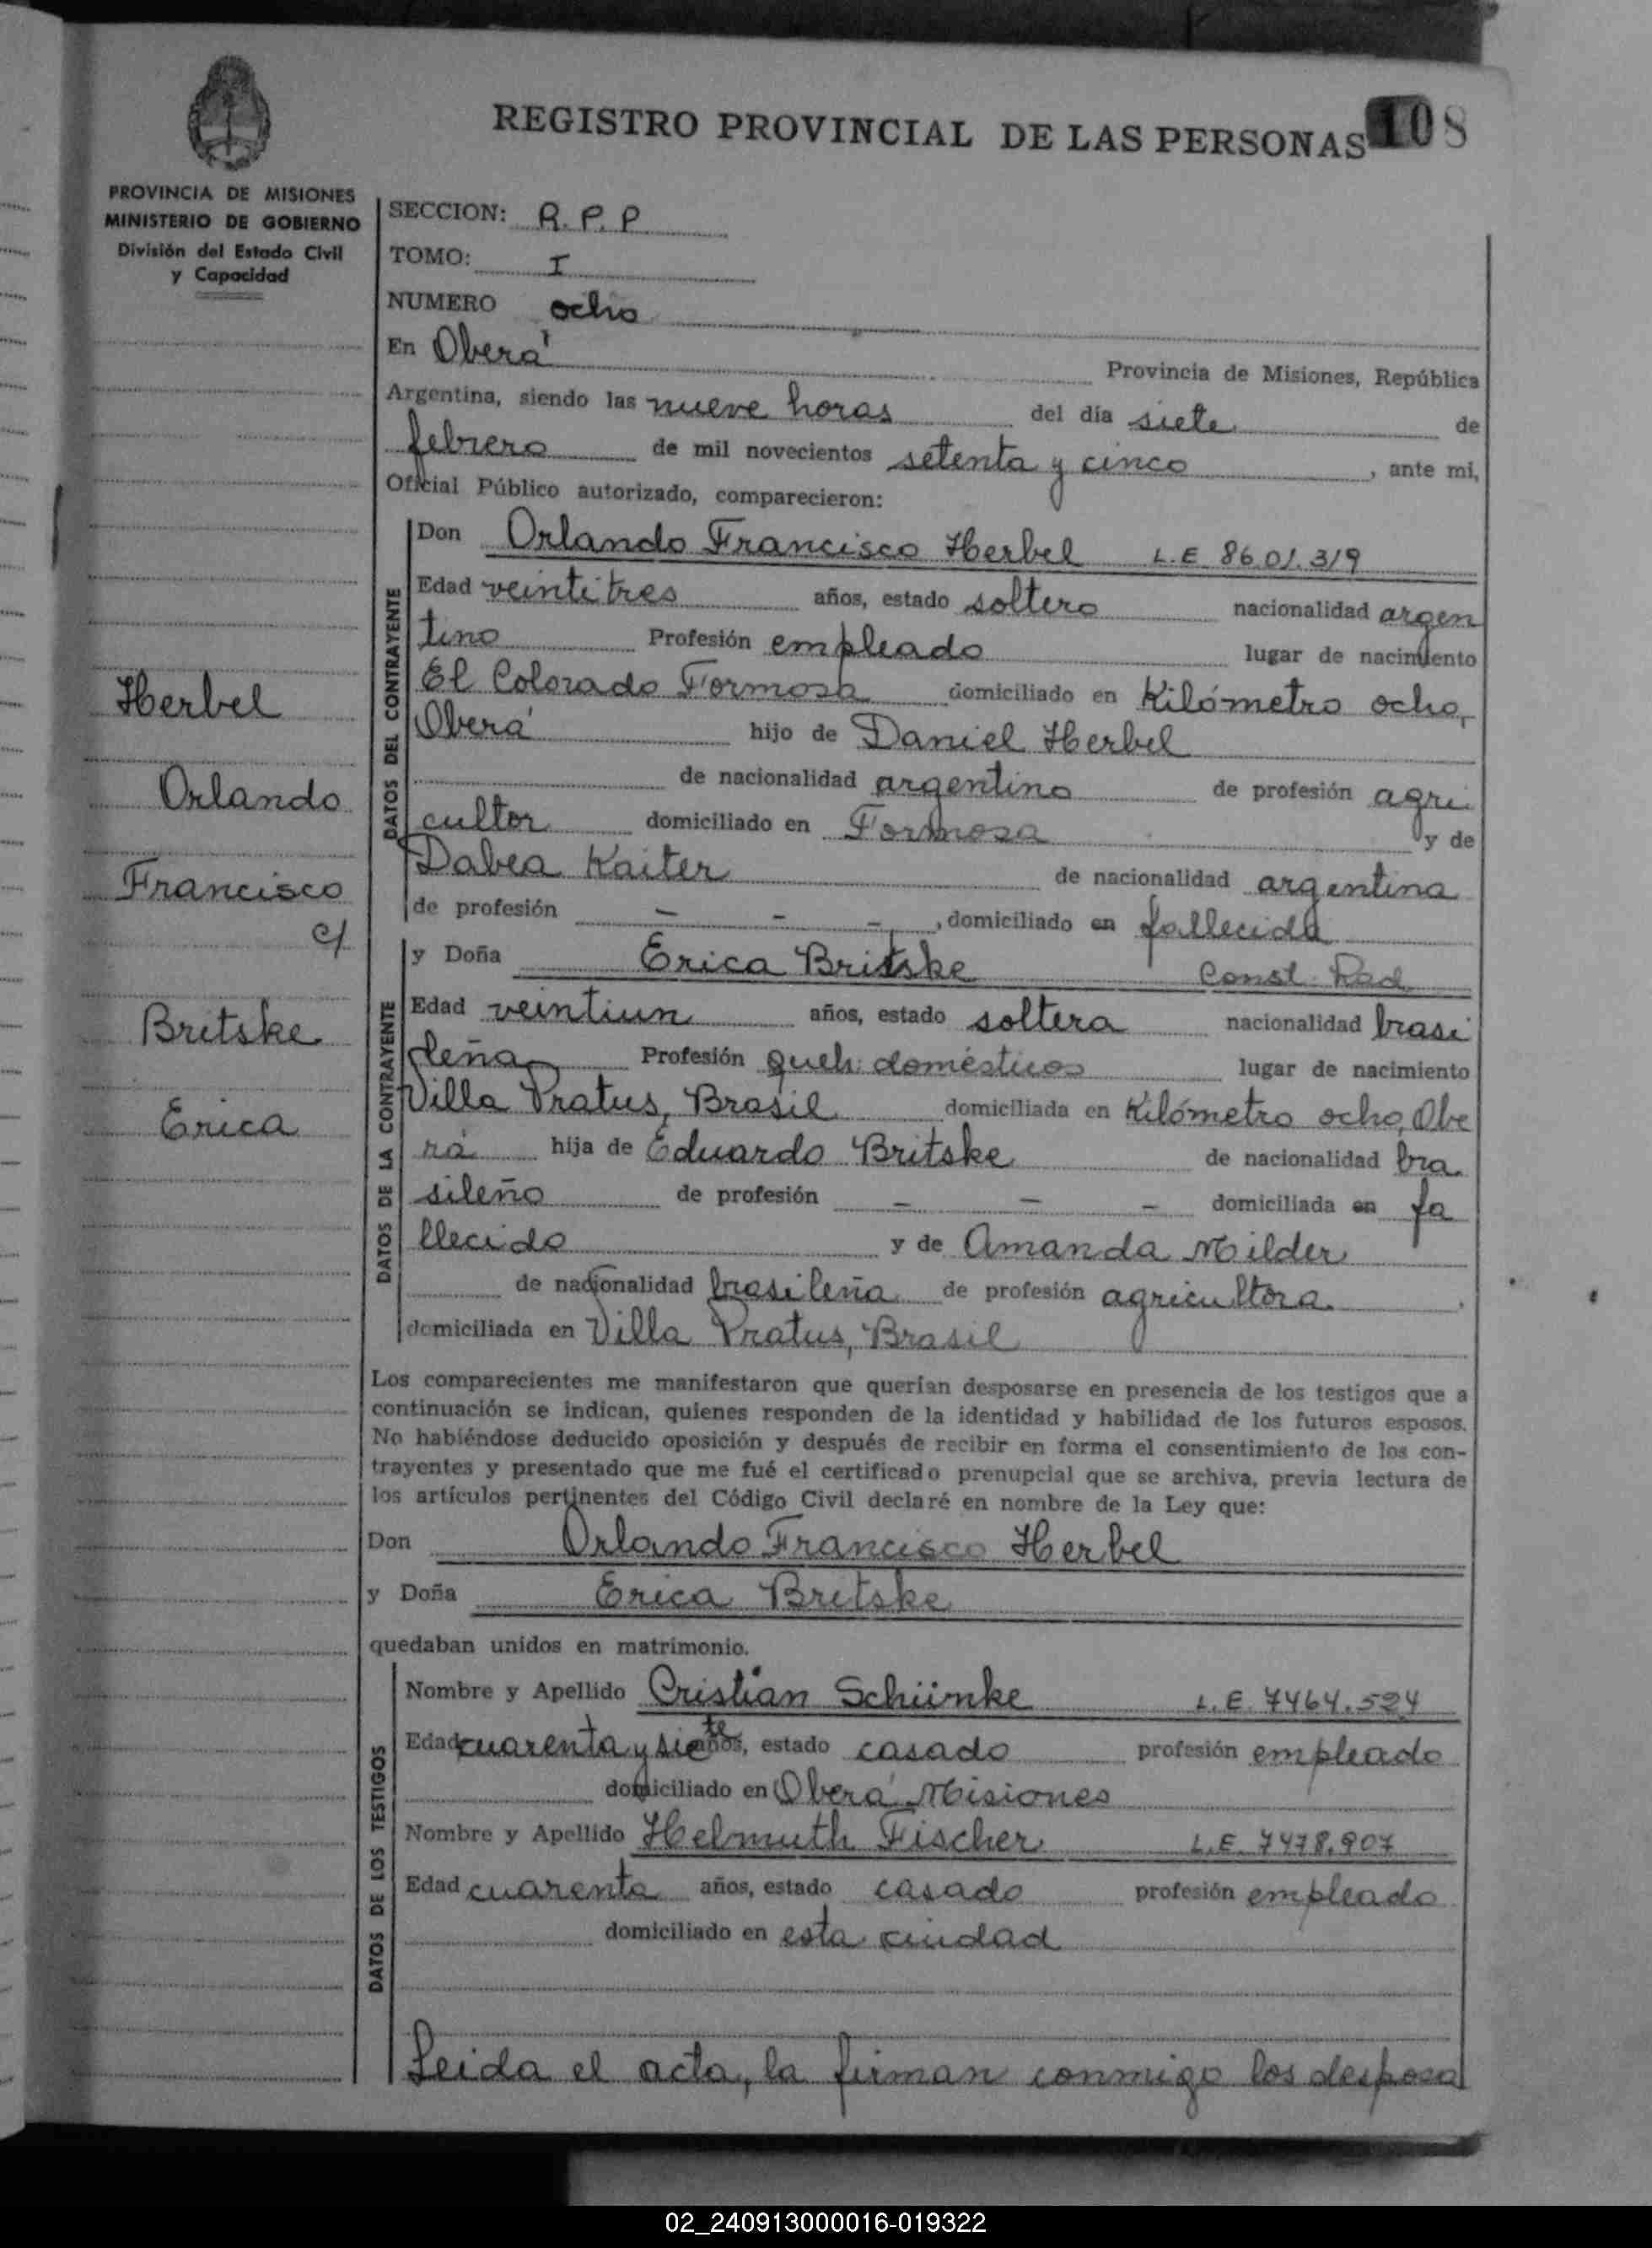 REGISTRO PROVINCIAL DE LAS PERSONAS 108
PROVINCIA DE MISIONES
MINISTERIO DE GOBIERNO
División del Estado Civil
y Capacidad
SECCION: R.P.P
TOMO: I
NUMERO ocho
En Oberá Provincia de Misiones, República
Argentina, siendo las nueve horas del día siete de
febrero de mil novecientos setenta y cinco, ante mi,
Oficial Público autorizado, comparecieron:
DATOS DEL CONTRAYENTE
Don Orlando Francisco Herbel L.E 8601.319
Edad veintitres años, estado soltero nacionalidad argen
tino Profesión empleado lugar de nacimiento
El Colorado Formosa domiciliado en Kilómetro ocho,
Oberá hijo de Daniel Herbel
de nacionalidad argentino de profesión agri
cultor domiciliado en Formosa y de
Dabea Kaiter de nacionalidad argentina
de profesión - - -, domiciliado en fallecida
Herbel
Orlando
Francisco
c/
Britske
Erica
DATOS DE LA CONTRAYENTE
y Doña Erica Britske Const. Rad
Edad veintiun años, estado soltera nacionalidad brasi
leña Profesión queh. domésticos lugar de nacimiento
Villa Pratus, Brasil domiciliada en Kilómetro ocho, Obe
rá hija de Eduardo Britske de nacionalidad bra
sileño de profesión - - - domiciliada en fa
llecido y de Amanda Milder
de nacionalidad brasileña de profesión agricultora.
domiciliada en Villa Pratus, Brasil
Los comparecientes me manifestaron que querían desposarse en presencia de los testigos que a
continuación se indican, quienes responden de la identidad y habilidad de los futuros esposos.
No habiéndose deducido oposición y después de recibir en forma el consentimiento de los con-
trayentes y presentado que me fué el certificado prenupcial que se archiva, previa lectura de
los artículos pertinentes del Código Civil declaré en nombre de la Ley que:
Don Orlando Francisco Herbel
y Doña Erica Britske
quedaban unidos en matrimonio.
DATOS DE LOS TESTIGOS
Nombre y Apellido Cristian Schünke L.E. 7464.524
Edad cuarenta y siete años, estado casado profesión empleado
domiciliado en Oberá Misiones
Nombre y Apellido Helmuth Fischer L.E. 7478.907
Edad cuarenta años, estado casado profesión empleado
domiciliado en esta ciudad
Leida el acta, la firman conmigo los desposa
02_240913000016-019322